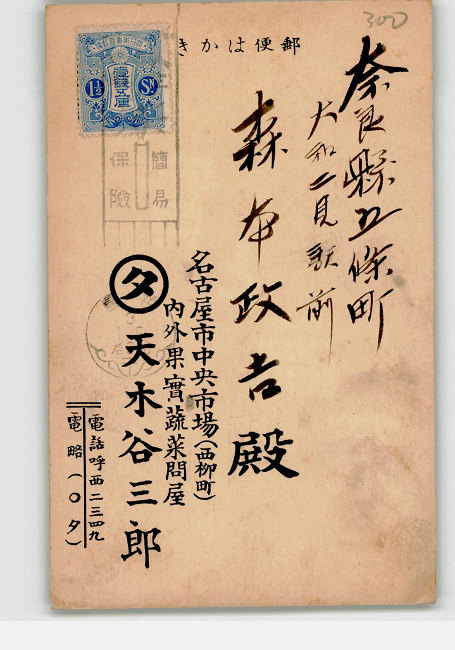 300
郵便はかき
奈良縣五條町
大和二見駅前
森本政吉殿
名古屋市中央市場(西柳町)
内外果實蔬菜問屋
夕 天木谷三郎
電話呼西二三四九
電略(〇タ)
壹錢五厘
1½ Sn
簡易
保險